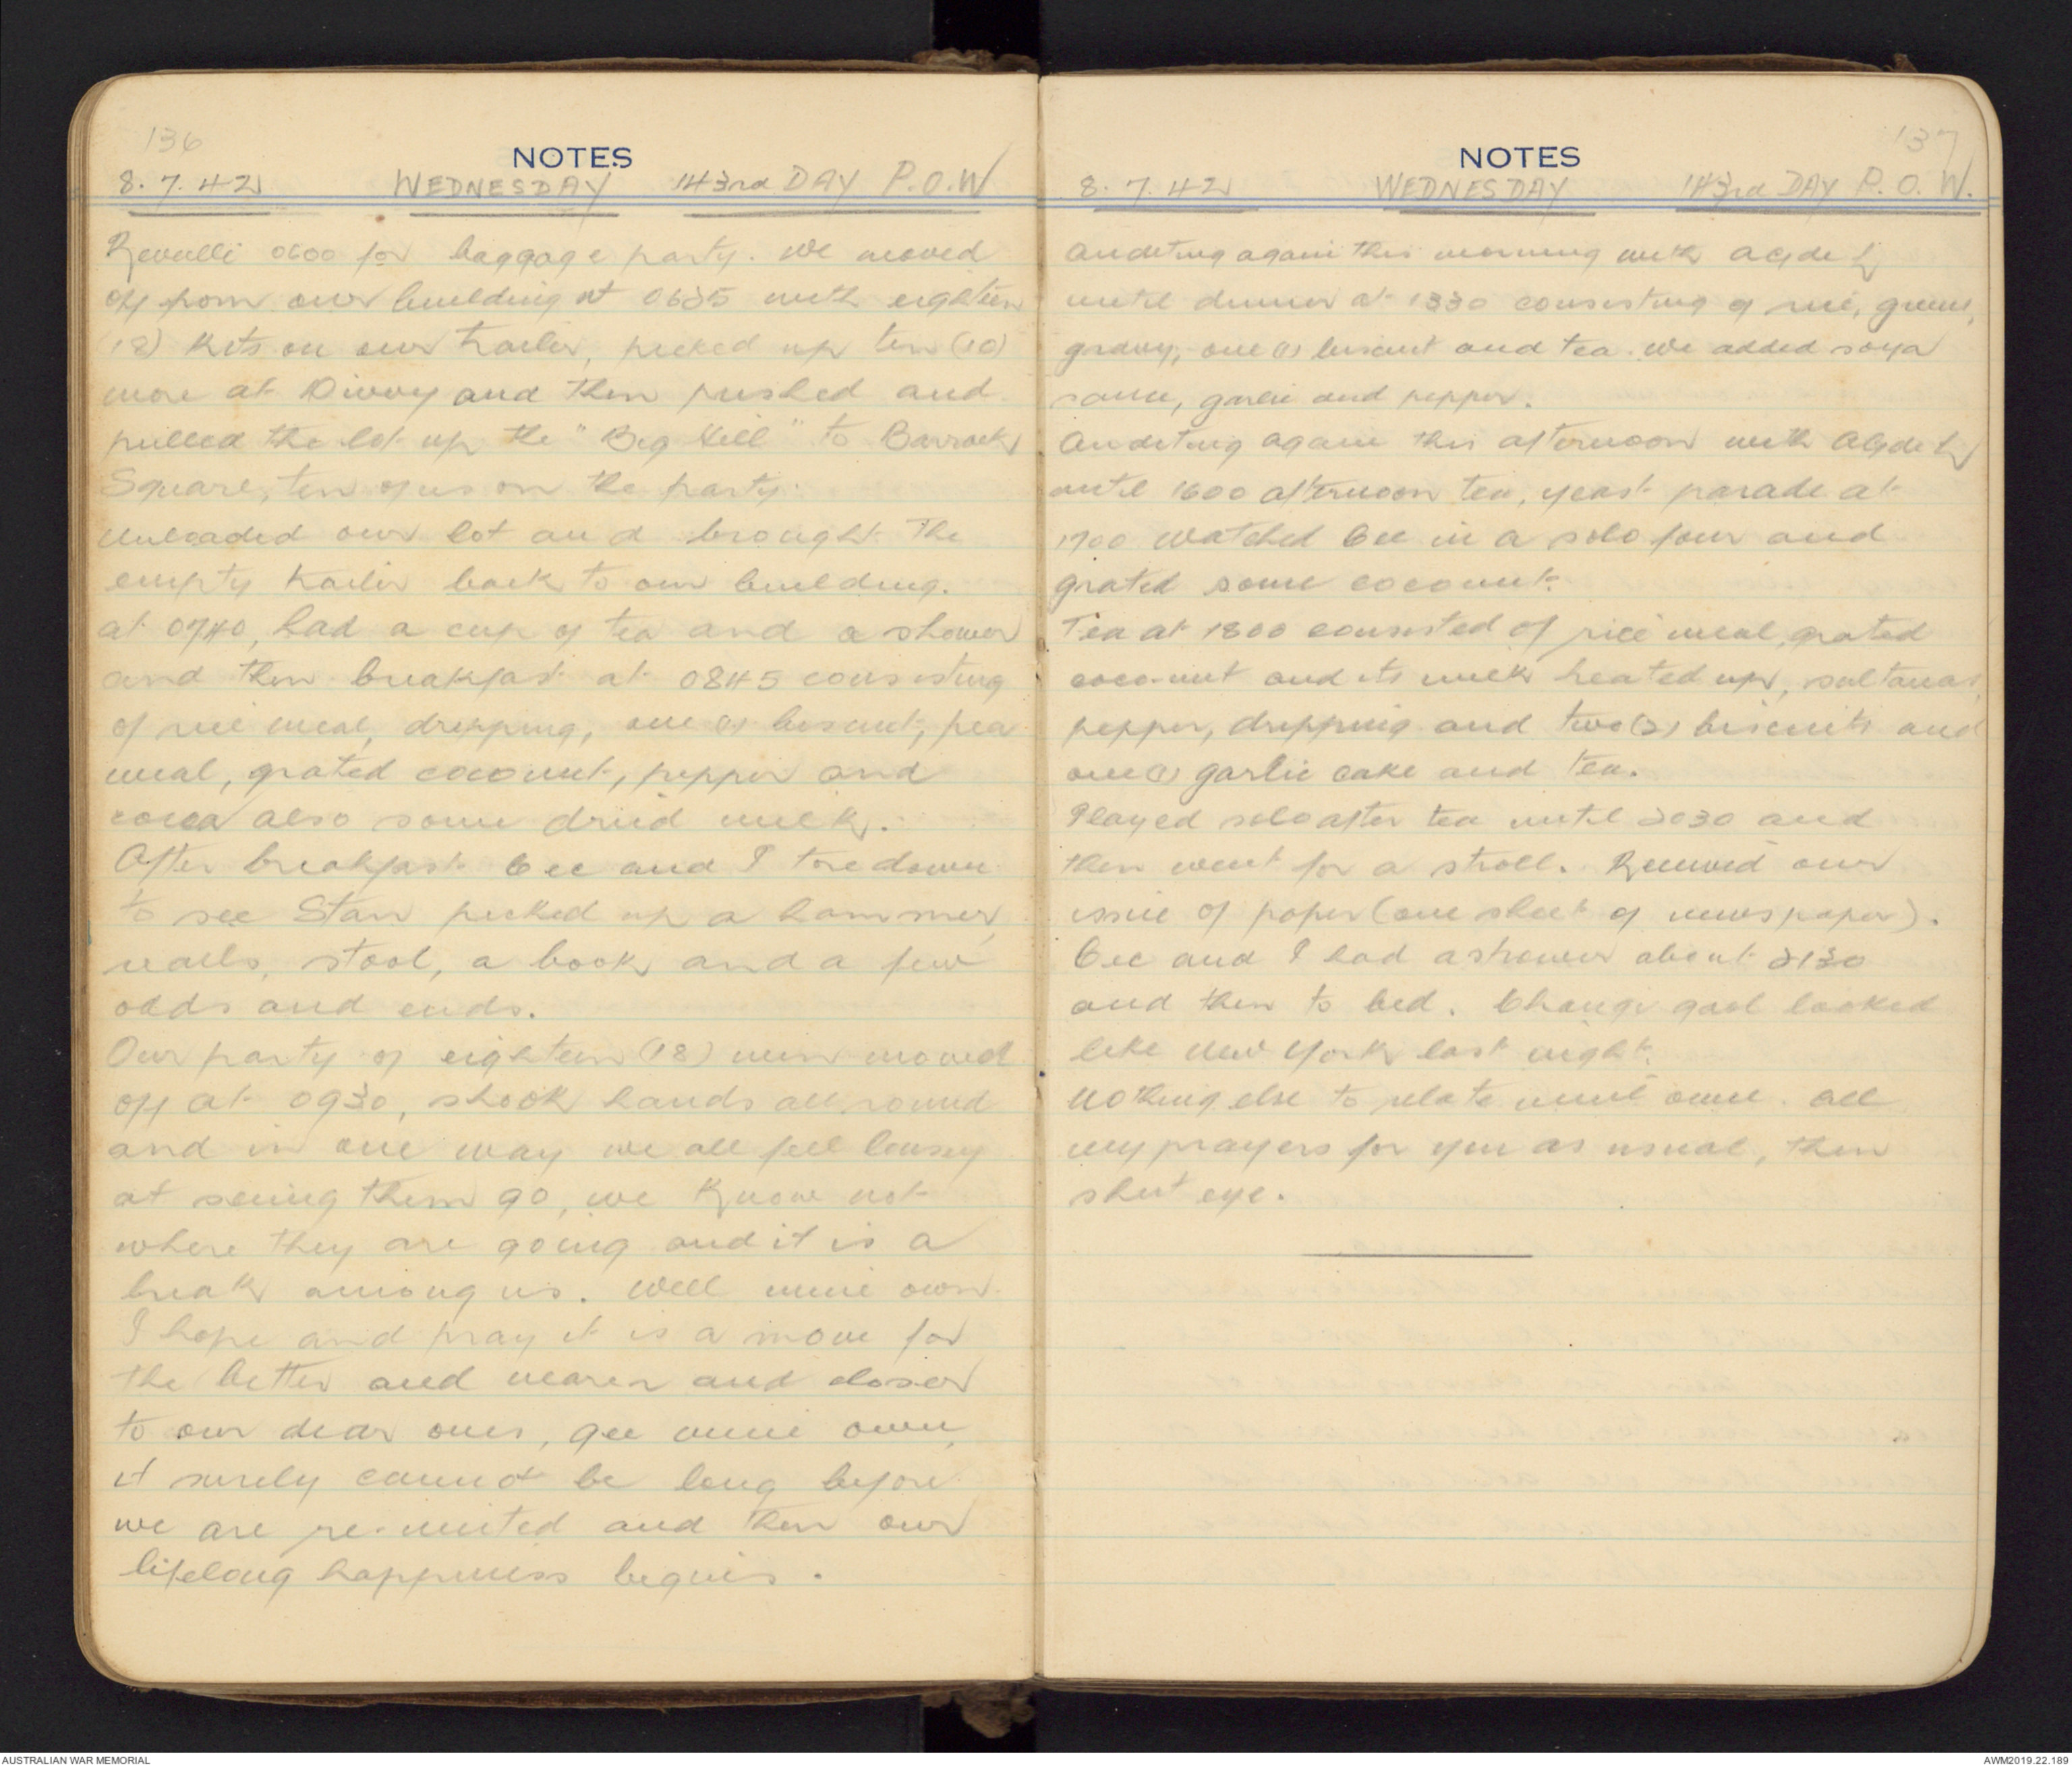 136
NOTES
8.7.42 WEDNESDAY 143rd DAY P.O.W
Revulli 0600 for baggage party. We moved
off from our building at 0635 with eighteen
(18) kits on our trailer, picked up ten (10)
more at Divvy and then pushed and
pulled the lot up the "Big Hill" to Barrack
Square, ten of us on the party.
Unloaded our lot and brought the
empty trailer back to our building.
at 0740, had a cup of tea and a shower
and then breakfast at 0845 consisting
of rice meal, dripping, one (1) biscuit, pea
meal, grated coconut, pepper and
cocoa also some dried milk.
After breakfast Cec and I tore down
to see Stan picked up a hammer,
nails, stool, a book and a few
odds and ends.
Our party of eighteen (18) men moved
off at 0930, shook hands all round
and in one way we all feel lousy
at seeing them go, we know not
where they are going and it is a
break among us. Well mine own
I hope and pray it is a move for
the better and nearer and closer
to our dear ones, gee mine own,
it surely cannot be long before
we are re-united and then our
lifelong happiness begins.
137
NOTES
8.7.42 WEDNESDAY 143rd DAY P.O.W.
Auditing again this morning with Clyde
until dinner at 1330 consisting of rice, greens,
gravy, one (1) biscuit and tea. We added soya
sauce, garlic and pepper.
Auditing again this afternoon with Clyde
until 1600 afternoon tea, yeast parade at
1700 watched Cec in a solo four and
grated some coconut.
Tea at 1800 consisted of rice meal, grated
coco-nut and its milk heated up, sultanas,
pepper, dripping and two (2) biscuits and
one (1) garlic cake and tea.
Played solo after tea until 2030 and
then went for a stroll. Received our
issue of paper (one sheet of newspaper).
Cec and I had a shower about 2130
and then to bed. Changi gaol looked
like New York last night.
Nothing else to relate mine own. All
my prayers for you as usual, then
shut eye.
AUSTRALIAN WAR MEMORIAL
AWM2019.22.189